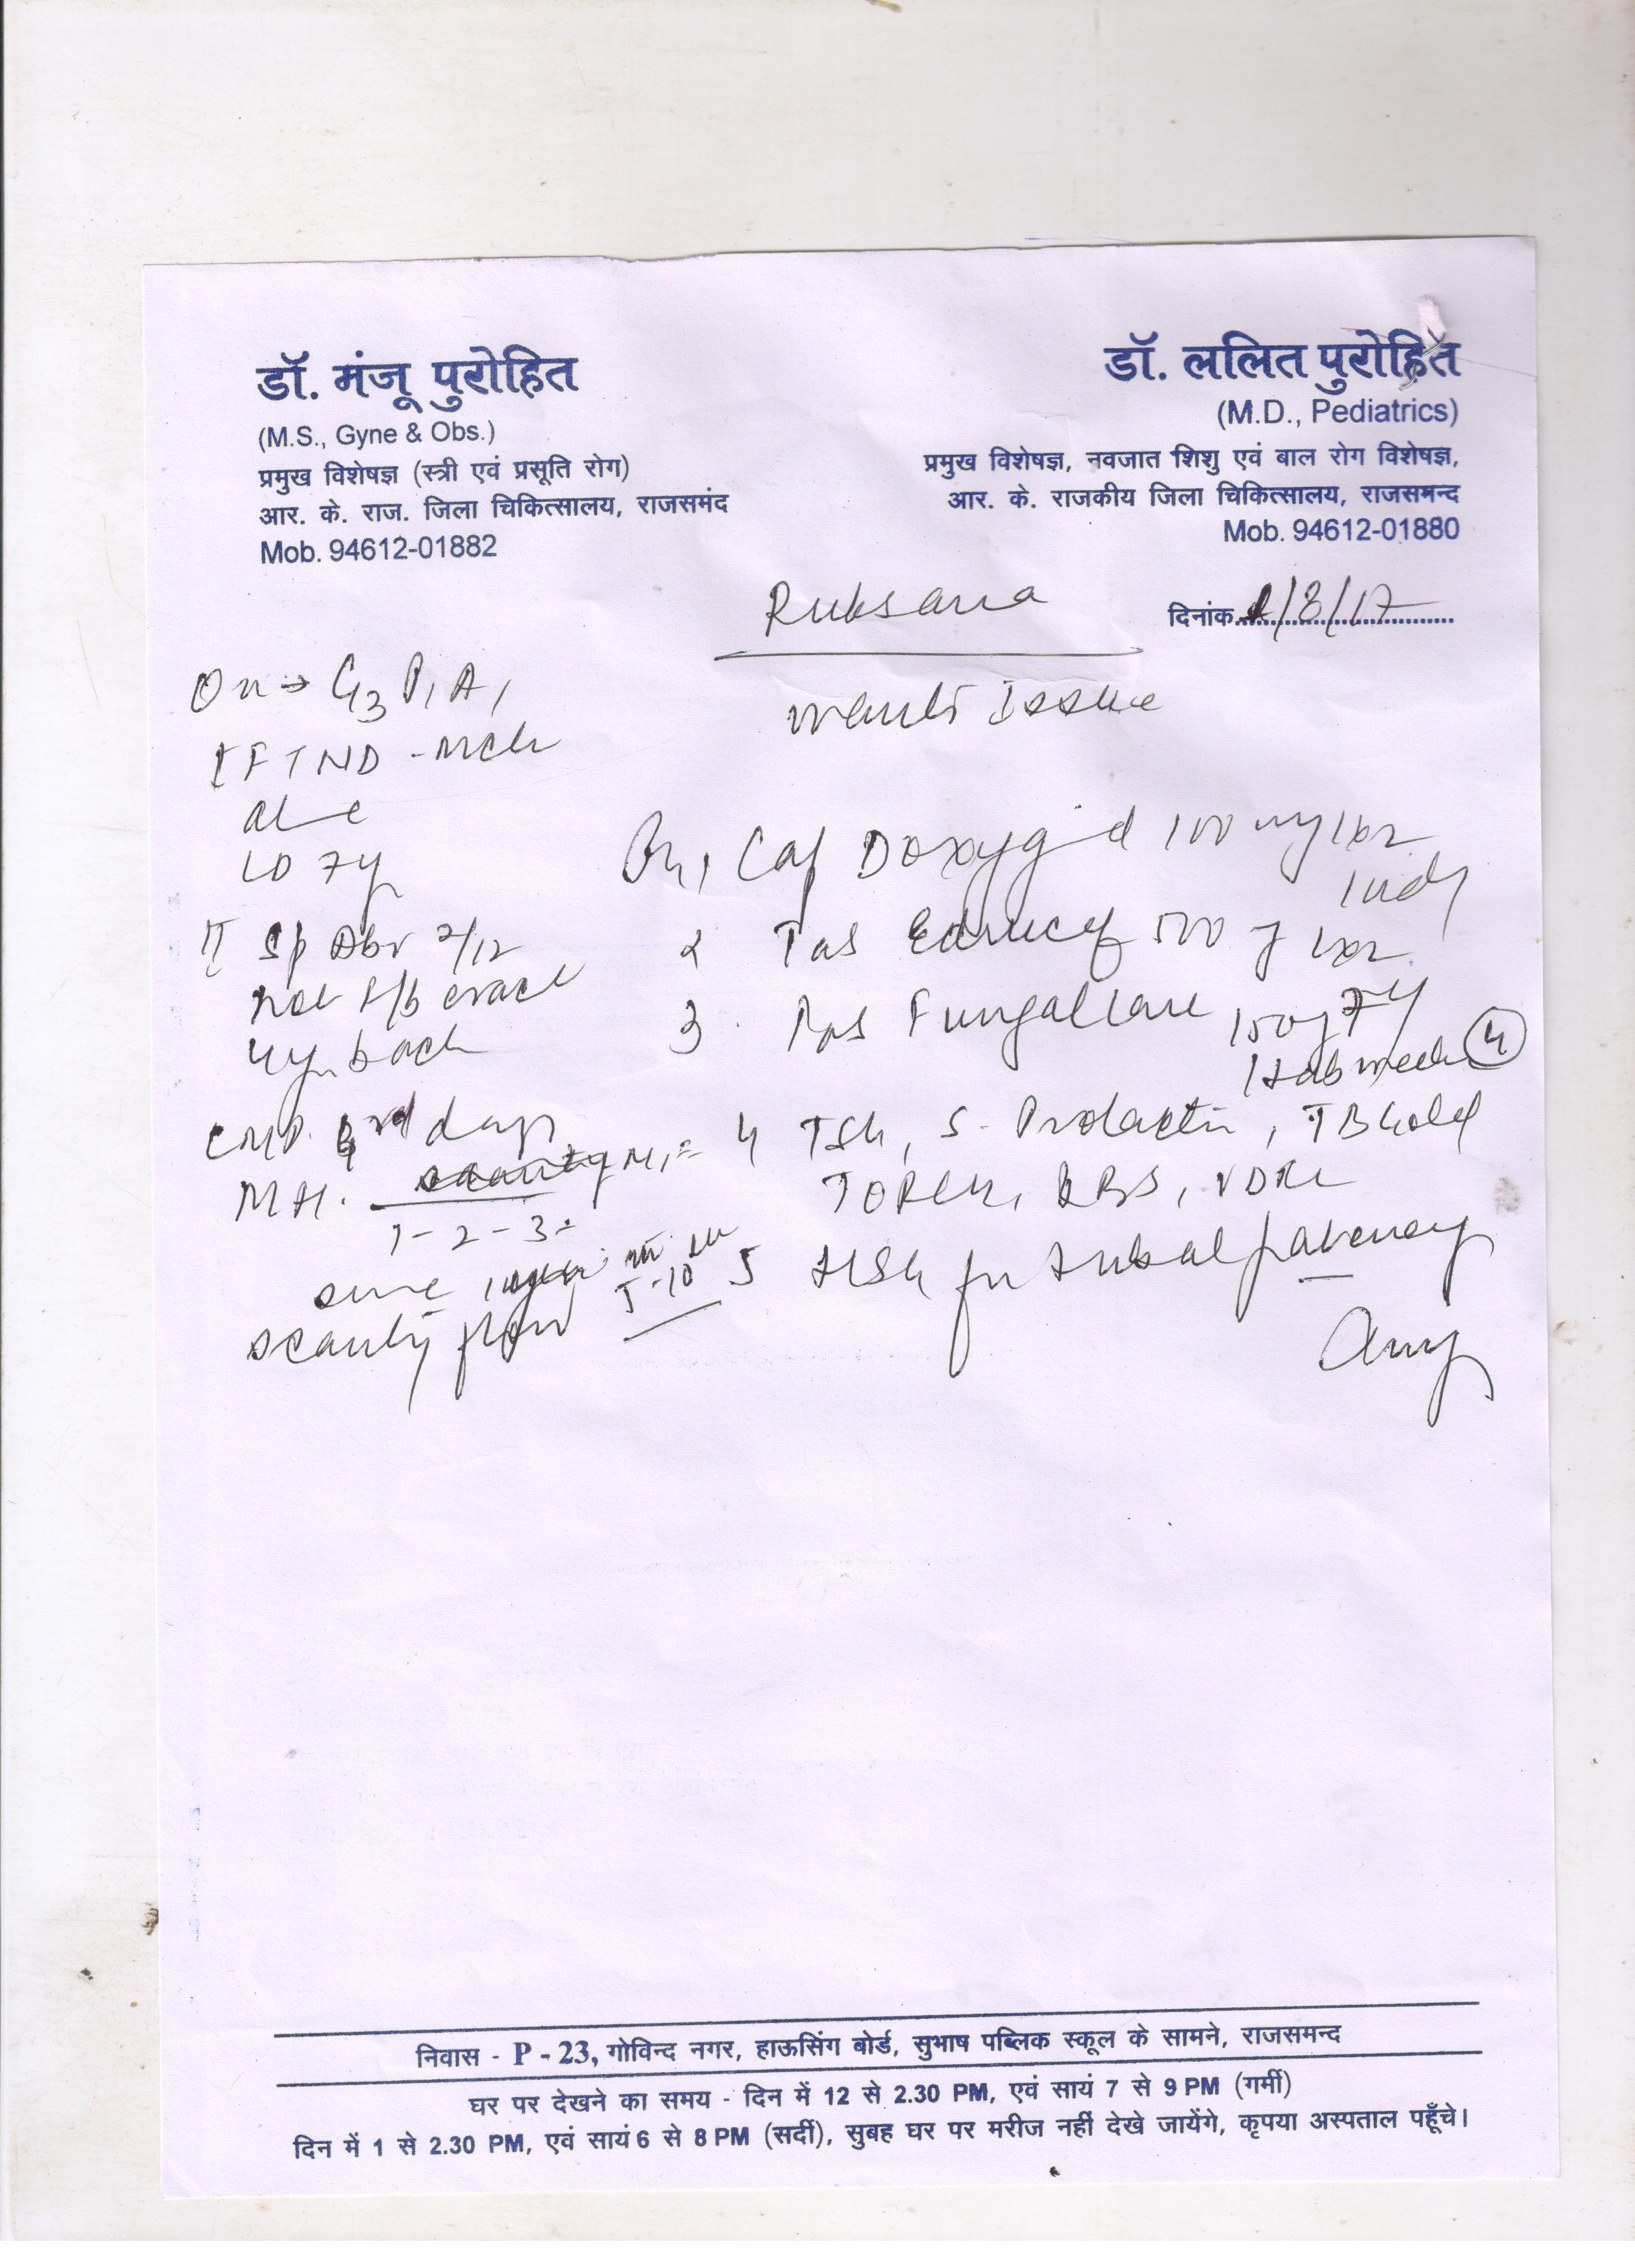 डॉ. मंजू पुरोहित
(M.S., Gyne & Obs.)
प्रमुख विशेषज्ञ (स्त्री एवं प्रसूति रोग)
आर. के. राज. जिला चिकित्सालय, राजसमंद
Mob. 94612-01882
डॉ. ललित पुरोहित
(M.D., Pediatrics)
प्रमुख विशेषज्ञ, नवजात शिशु एवं बाल रोग विशेषज्ञ,
आर. के. राजकीय जिला चिकित्सालय, राजसमन्द
Mob. 94612-01880
Ruksana
दिनांक 1/8/17
wants Issue
G3 P1 A1
I FTND - mch
LD 7y
II Sp Abr 2/12
4y back
LMP. 3rd day
M.H.
1-2-3
since
scanty flow 5-10
1 Cap 100 mg 1x2
2 Tab 500 1x2
3. Fungalcare 150
1 tab week 4
4 TSH, S. Prolactin, TB Gold
TORCH, RBS, VDRL
5 HSG for tubal patency
निवास - P - 23, गोविन्द नगर, हाऊसिंग बोर्ड, सुभाष पब्लिक स्कूल के सामने, राजसमन्द
घर पर देखने का समय - दिन में 12 से 2.30 PM, एवं सायं 7 से 9 PM (गर्मी)
दिन में 1 से 2.30 PM, एवं सायं 6 से 8 PM (सर्दी), सुबह घर पर मरीज नहीं देखे जायेंगे, कृपया अस्पताल पहुँचे।